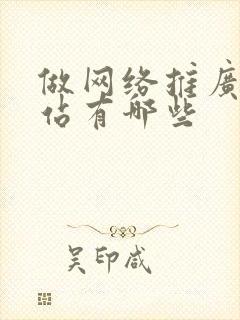 做网络推廣
佔有哪些
吴印咸